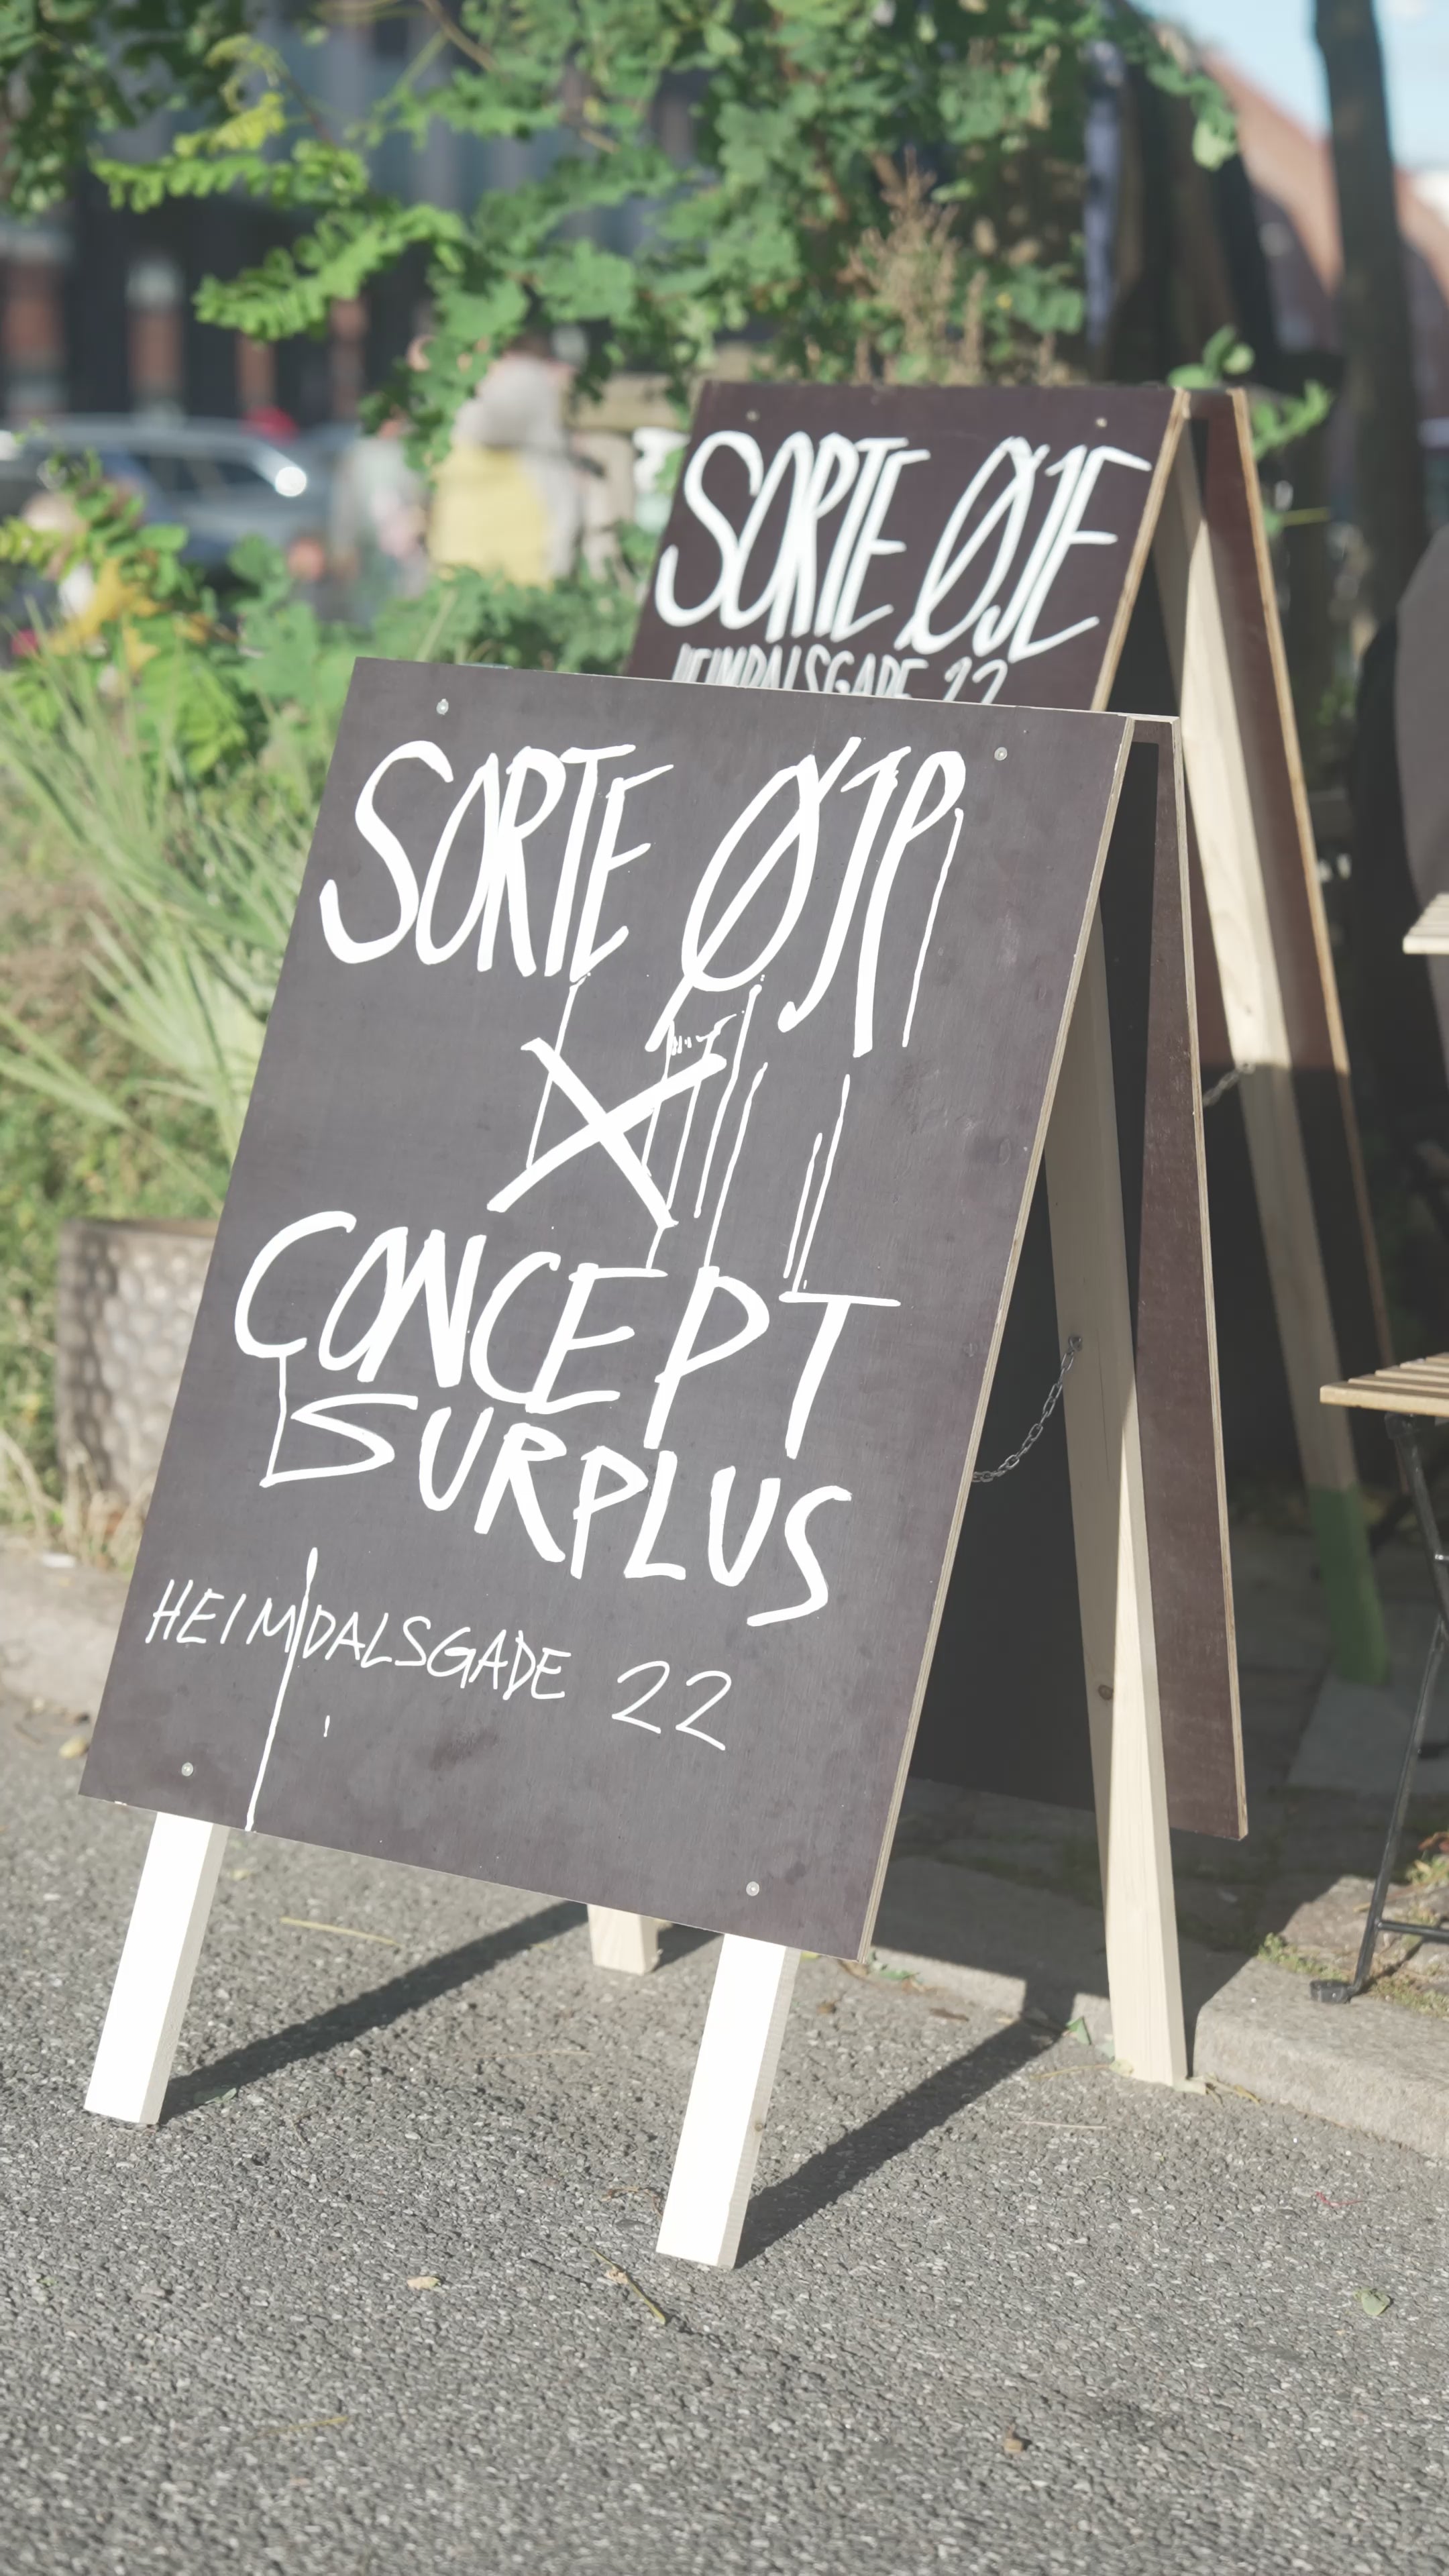 SORTE ØJE
HEIMDALSGADE 22
SORTE ØJE
X
CONCEPT
SURPLUS
HEIMDALSGADE 22